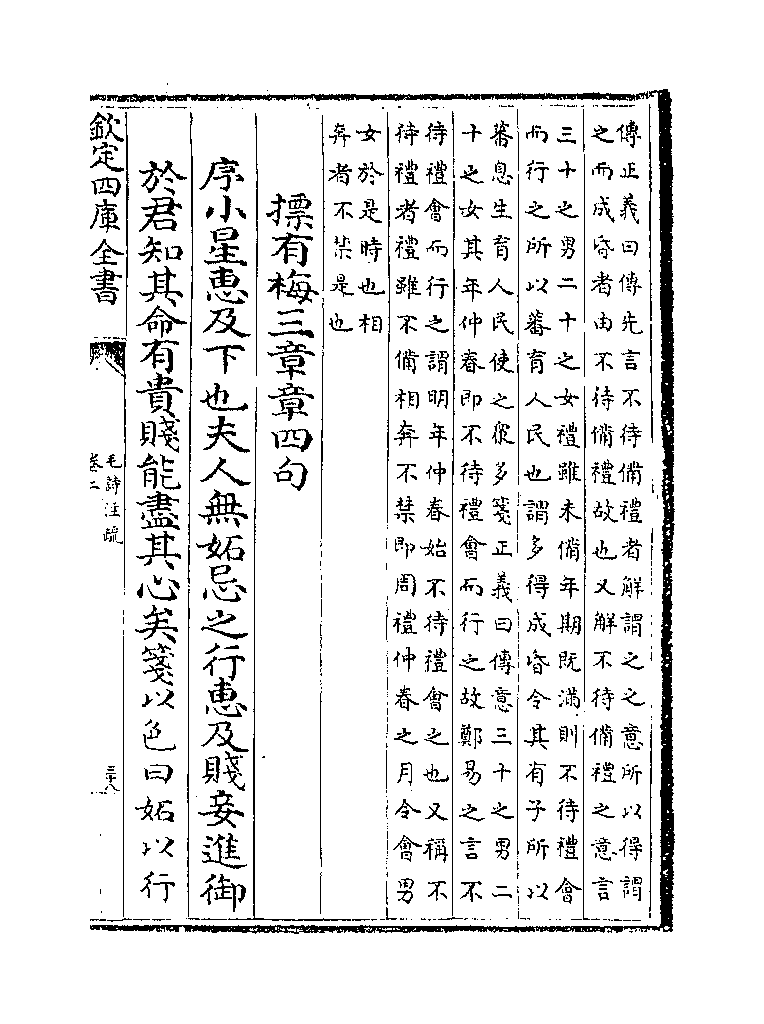 傳正義曰傳先言不待備禮者解謂之之意所以得謂
之而成昏者由不待備禮故也又解不待備禮之意言
三十之男二十之女禮雖未備年期既滿則不待禮會
而行之所以蕃育人民也謂多得成昏令其有子所以
蕃息生育人民使之衆多箋正義曰傳意三十之男二
十之女其年仲春即不待禮會而行之故鄭易之言不
待禮會而行之謂明年仲春始不待禮會之也又稱不
待禮者禮雖不備相奔不禁即周禮仲春之月令會男
女於是時也相
奔者不禁是也
摽有梅三章章四句
序小星惠及下也夫人無妬忌之行惠及賤妾進御
於君知其命有貴賤能盡其心矣箋以色曰妬以行
欽定四庫全書
毛詩注疏
卷二
三十八